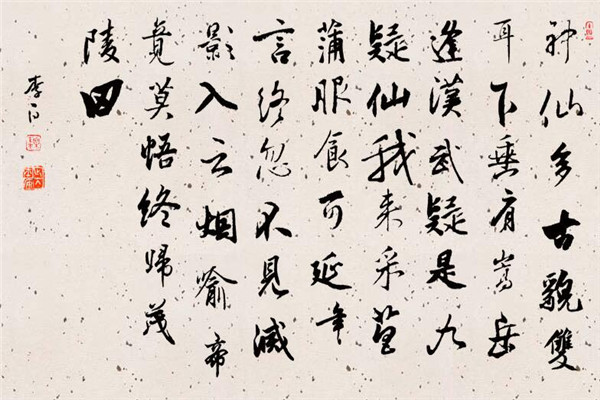 神仙多古貌雙
耳下垂肩嵩岳
逢漢武疑是九
疑仙我来采菖
蒲服食可延年
言終忽不見滅
影入云烟喻帝
竟莫悟終歸茂
陵田
李白